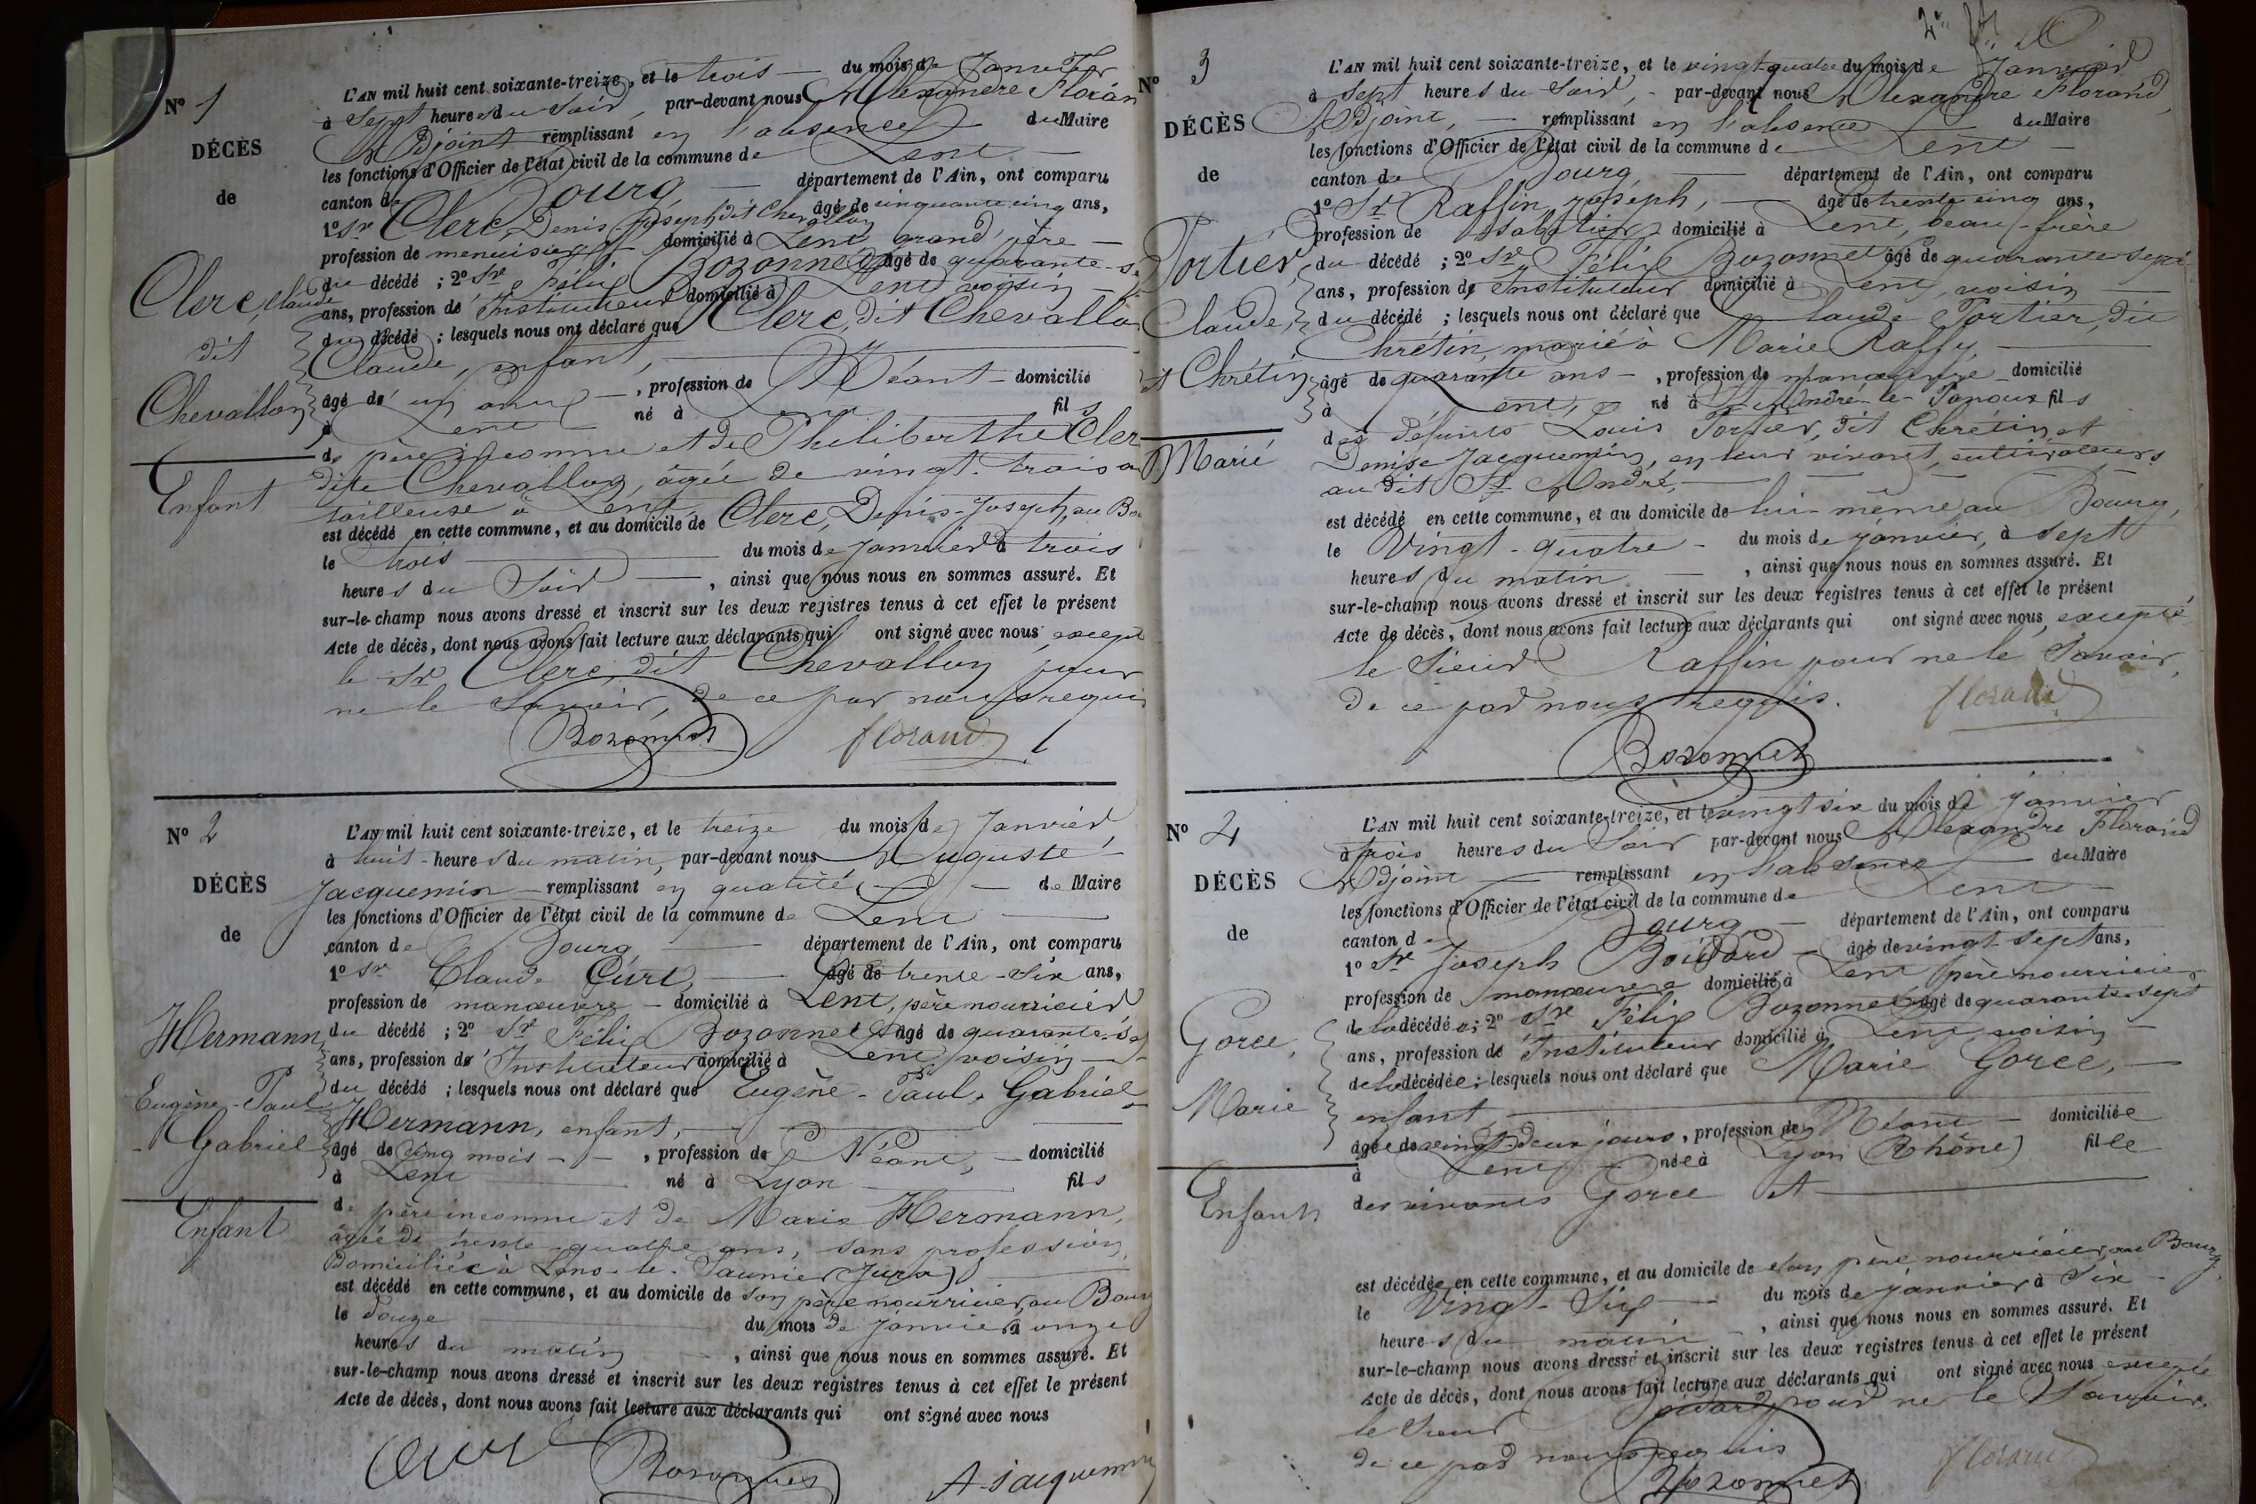 N° 1
DÉCÈS
de
Clerc, Claude
dit
Chevallon
Enfant
L'AN mil huit cent soixante-treize, et le trois du mois de Janvier
à Sept heures du Soir, par-devant nous Alexandre Florand
Adjoint remplissant en l'absence du Maire
les fonctions d'Officier de l'état civil de la commune de Lent
canton de Bourg département de l'Ain, ont comparu
1° Sr Clerc, Denis Joseph dit Chevallon âgé de cinquante cinq ans,
profession de menuisier domicilié à Lent grand'père
du décédé ; 2° Sr Félix Bozonnet âgé de quarante-se
ans, profession de Instituteur domicilié à Lent voisin
du décédé ; lesquels nous ont déclaré que Clerc, dit Chevallo
Claude, enfant,
âgé de un an , profession de Néant domicilié
à Lent né à Lent fils
de père inconnu et de Philiberthe Cler
dite Chevallon, âgée de vingt-trois a
tailleuse à Lent,
est décédé en cette commune, et au domicile de Clerc, Denis-Joseph, au Bo
le trois du mois de Janvier à trois
heures du Soir , ainsi que nous nous en sommes assuré. Et
sur-le-champ nous avons dressé et inscrit sur les deux registres tenus à cet effet le présent
Acte de décès, dont nous avons fait lecture aux déclarants qui ont signé avec nous except
le Sr Clerc, dit Chevallon pour
ne le Savoir, de ce par nous requis
Bozonnet florand
N° 2
DÉCÈS
de
Hermann
Eugène-Paul
Gabriel
Enfant
L'AN mil huit cent soixante-treize, et le treize du mois de Janvier
à huit heures du matin, par-devant nous Auguste
Jacquemin remplissant en qualité de Maire
les fonctions d'Officier de l'état civil de la commune de Lent
canton de Bourg département de l'Ain, ont comparu
1° Sr Claude Curt, âgé de trente-six ans,
profession de manœuvre domicilié à Lent, père nourricier
du décédé ; 2° Sr Félix Bozonnet âgé de quarante-se
ans, profession de Instituteur domicilié à Lent voisin
du décédé ; lesquels nous ont déclaré que Eugène-Paul-Gabriel
Hermann, enfant,
âgé de cinq mois , profession de Néant, domicilié
à Lent né à Lyon fils
de père inconnu et de Marie Hermann,
âgée de trente-quatre ans, sans profession,
Domiciliée à Lons-le-Saunier (Jura)
est décédé en cette commune, et au domicile de son père nourricier, au Bourg
le douze du mois de janvier à onze
heures du matin , ainsi que nous nous en sommes assuré. Et
sur-le-champ nous avons dressé et inscrit sur les deux registres tenus à cet effet le présent
Acte de décès, dont nous avons fait lecture aux déclarants qui ont signé avec nous
Curt Bozonnet A. Jacquemin
N° 3
DÉCÈS
de
Portier,
Claude,
dit Chrétin
Marié
L'AN mil huit cent soixante-treize, et le vingt-quatre du mois de Janvier
à Sept heures du Soir, par-devant nous Alexandre Florand,
Adjoint, remplissant en l'absence du Maire
les fonctions d'Officier de l'état civil de la commune de Lent
canton de Bourg département de l'Ain, ont comparu
1° Sr Raffin, Joseph, âgé de trente cinq ans,
profession de sabotier domicilié à Lent, beau-frère
du décédé ; 2° Sr Félix Bozonnet âgé de quarante sept
ans, profession de Instituteur domicilié à Lent, voisin
du décédé ; lesquels nous ont déclaré que Claude Portier, dit
Chrétin, marié à Marie Raffin,
âgé de quarante ans , profession de manœuvre domicilié
à Lent, né à St André-le-Panoux fils
des défunts Louis Portier, dit Chrétin et
Denise Jacquemin, en leur vivant, cultivateurs
au dit St André,
est décédé en cette commune, et au domicile de lui-même au Bourg,
le Vingt-quatre du mois de janvier, à sept
heures du matin , ainsi que nous nous en sommes assuré. Et
sur-le-champ nous avons dressé et inscrit sur les deux registres tenus à cet effet le présent
Acte de décès, dont nous avons fait lecture aux déclarants qui ont signé avec nous, excepté
le Sieur Raffin pour ne le Savoir,
de ce par nous requis. florand
Bozonnet
N° 4
DÉCÈS
de
Gorce,
Marie
Enfant
L'AN mil huit cent soixante-treize, et le vingt six du mois de janvier
à trois heures du Soir par-devant nous Alexandre Florand
Adjoint remplissant en l'absence du Maire
les fonctions d'Officier de l'état civil de la commune de Lent
canton de Bourg département de l'Ain, ont comparu
1° Sr Joseph Boidard âgé de vingt-sept ans,
profession de manœuvre domicilié à Lent père nourricier
de la décédée ; 2° Sr Félix Bozonnet âgé de quarante-sept
ans, profession de Instituteur domicilié à Lent, voisin
de la décédée ; lesquels nous ont déclaré que Marie Gorce,
enfant
âgée de vingt-deux jours, profession de Néant domiciliée
à Lent née à Lyon (Rhône) fille
des vivants Gorce et
est décédée en cette commune, et au domicile de son père nourricier, au Bourg,
le Vingt-Six du mois de janvier à six
heures du matin , ainsi que nous nous en sommes assuré. Et
sur-le-champ nous avons dressé et inscrit sur les deux registres tenus à cet effet le présent
Acte de décès, dont nous avons fait lecture aux déclarants qui ont signé avec nous excepté
le Sieur Boidard pour ne le Savoir,
de ce par nous requis florand
Bozonnet